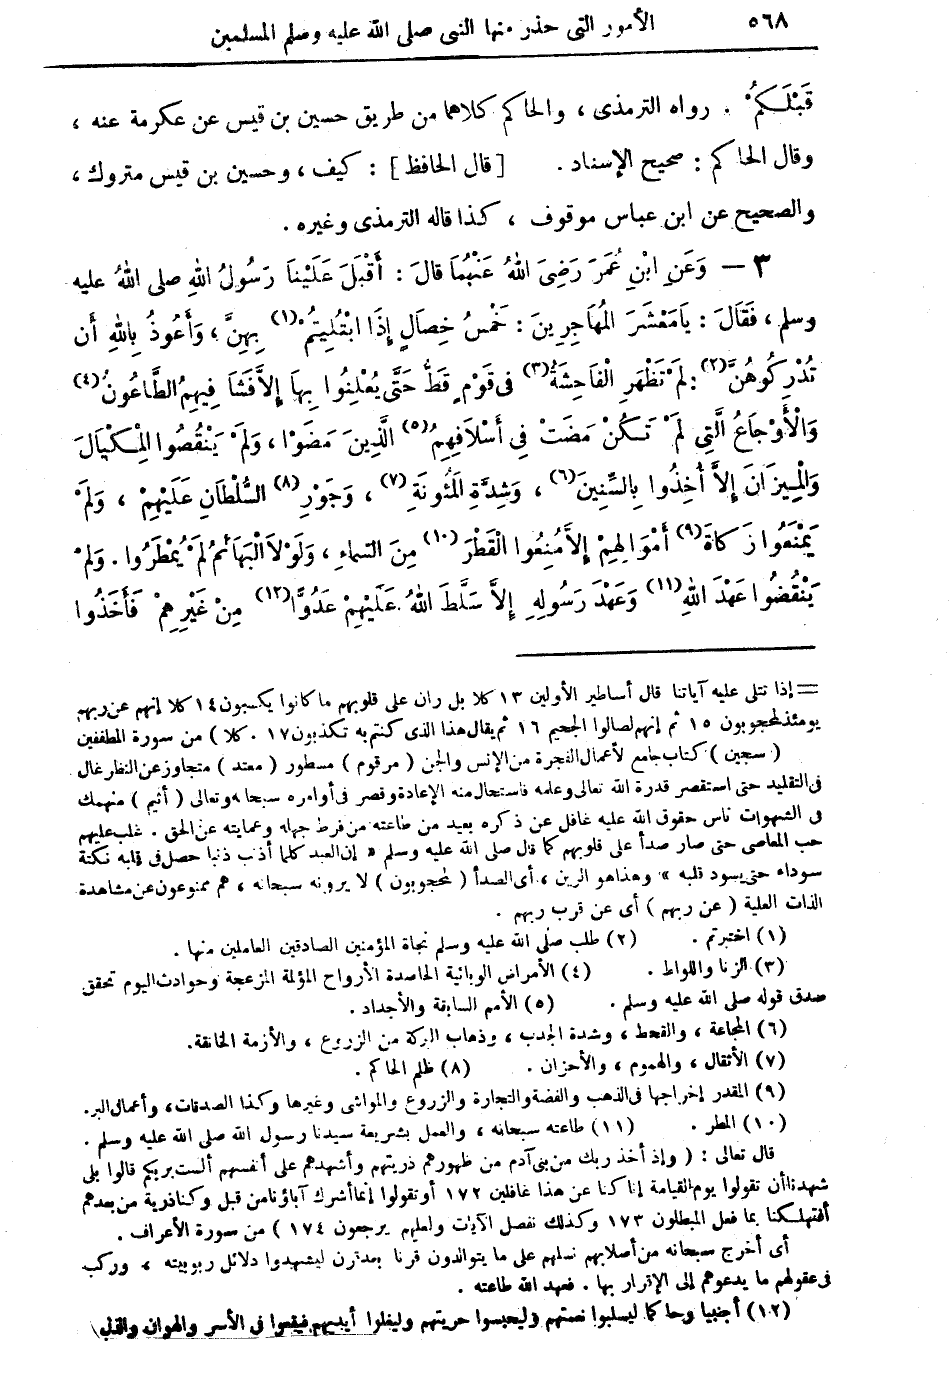 ٥٦٨ الأمور التى حذر منها النبى صلى الله عليه وسلم المسلمين
قَبْلَكُمْ . رواه الترمذى ، والحاكم كلاهما من طريق حسين بن قيس عن عكرمة عنه ،
وقال الحاكم : صحيح الإسناد . [ قال الحافظ ] : كيف ، وحسين بن قيس متروك ،
والصحيح عن ابن عباس موقوف ، كذا قاله الترمذى وغيره .
٣ — وَعَنِ ابْنِ عُمَرَ رَضِىَ اللهُ عَنْهُمَا قالَ : أَقْبَلَ عَلَيْنَا رَسُولُ اللهِ صلى اللهُ عليه
وسلم ، فَقَالَ : يَامَعْشَرَ المُهَاجِرِينَ : خَمْسُ خِصَالٍ إِذَا ابْتُلِيتُمْ (١) بِهِنَّ ، وَأَعُوذُ بِاللهِ أَن
تُدْرِكُوهُنَّ (٢) : لَمْ تَظْهَرِ الْفَاحِشَةُ (٣) فى قَوْمٍ قَطُّ حَتَّى يُعْلِنُوا بِهَا إِلاَّ فَشَا فِيهِمُ الطَّاعُونُ (٤)
وَالْأَوْجَاعُ الَّتِي لَمْ تَكُنْ مَضَتْ فِي أَسْلَافِهِمُ (٥) الَّذِينَ مَضَوْا ، وَلَمْ يَنْقُصُوا الْمِكْيَالَ
وَالْمِيزَانَ إِلاَّ أُخِذُوا بِالسِّنِينَ (٦) ، وَشِدَّةِ المَئُونَةِ (٧) ، وَجَوْرِ (٨) السُّلْطَانِ عَلَيْهِمْ ، وَلَمْ
يَمْنَعُوا زَكاةَ (٩) أَمْوَالِهِمْ إِلاَّ مُنِعُوا الْقَطْرَ (١٠) مِنَ السَّمَاءِ ، وَلَوْلَا الْبَهَائمُ لَمْ يُمْطَرُوا . وَلَمْ
يَنْقُضُوا عَهْدَ اللهِ (١١) وَعَهْدَ رَسُولِهِ إِلاَّ سَلَّطَ اللهُ عَلَيْهِمْ عَدُوًّا (١٢) مِنْ غَيْرِهِمْ فَأَخَذُوا
= إذا تتلى عليه آياتنا قال أساطير الأولين ١٣ كلا بل ران على قلوبهم ما كانوا يكسبون ١٤ كلا إنهم عن ربهم
يومئذ لمحجوبون ١٥ ثم إنهم لصالوا الجحيم ١٦ ثم يقال هذا الذى كنتم به تكذبون ١٧ . كلا ) من سورة المطففين
( سجين ) كتاب جامع لأعمال الفجرة من الإنس والجن ( مرقوم ) مسطور ( معتد ) متجاوز عن النظر غال
فى التقليد حتى استقصر قدرة الله تعالى وعلمه فاستحال منه الإعادة وقصر فى أوامره سبحانه وتعالى ( أثيم ) منهمك
فى الشهوات ناس حقوق الله عليه غافل عن ذكره بعيد من طاعته من فرط جهله وعمايته عن الحق . غلب عليهم
حب المعاصى حتى صار صدأ على قلوبهم كما قال صلى الله عليه وسلم « إن العبد كلما أذنب ذنبا حصل فى قلبه نكتة
سوداء حتى يسود قلبه » وهذا هو الرين ، أى الصدأ ( لمحجوبون ) لا يرونه سبحانه ، هم ممنوعون عن مشاهدة
الذات العلية ( عن ربهم ) أى عن قرب ربهم .
(١) اختبرتم . (٢) طلب صلى الله عليه وسلم نجاة المؤمنين الصادقين العاملين منها .
(٣) الزنا واللواط . (٤) الأمراض الوبائية الحاصدة الأرواح المؤلمة المزعجة وحوادث اليوم تحقق
صدق قوله صلى الله عليه وسلم . (٥) الأمم السابقة والأجداد .
(٦) المجاعة ، والقحط ، وشدة الجدب ، وذهاب البركة من الزروع ، والأزمة الخانقة.
(٧) الأثقال ، والهموم ، والأحزان . (٨) ظلم الحاكم .
(٩) المقدر إخراجها فى الذهب والفضة والتجارة والزروع والمواشى وغيرها وكذا الصدقات، وأعمال البر.
(١٠) المطر . (١١) طاعته سبحانه ، والعمل بشريعة سيدنا رسول الله صلى الله عليه وسلم .
قال تعالى : ( وإذ أخذ ربك من بنى آدم من ظهورهم ذريتهم وأشهدهم على أنفسهم ألست بربكم قالوا بلى
شهدنا أن تقولوا يوم القيامة إنا كنا عن هذا غافلين ١٧٢ أو تقولوا إنما أشرك آباؤنا من قبل وكنا ذرية من بعدهم
أفتهلكنا بما فعل المبطلون ١٧٣ وكذلك نفصل الآيات ولعلهم يرجعون ١٧٤ ) من سورة الأعراف .
أى أخرج سبحانه من أصلابهم نسلهم على ما يتوالدون قرنا بعد قرن ليشهدوا دلائل ربوبيته ، وركب
فى عقولهم ما يدعوهم إلى الإقرار بها . فعهد الله طاعته .
(١٢) أجنبيا وحاكما ليسلبوا نعمتهم وليحبسوا حريتهم وليغلوا أيديهم فيقعوا فى الأسر والهوان والقلب